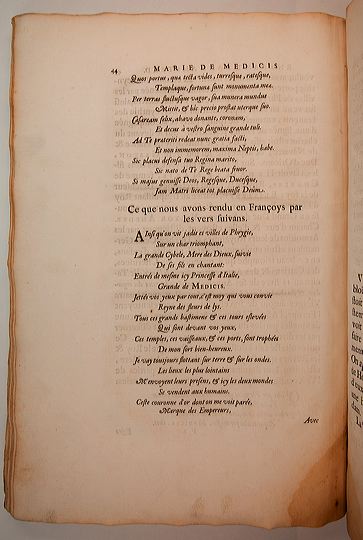 44 MARIE DE MEDICIS
Quos portus, quæ tecta vides, turresque, ratesque,
Templaque, fortunæ sunt monumenta meæ.
Per terras fluctusque vagor, sua munera mundus
Mittit, & hîc precio prostat uterque suo.
Cæsaream felix, abavo donante, coronam,
Et decus à vestro sanguine grande tuli.
Ad Te præteriti redeat nunc gratia facti,
Et non immemorem, maxima Neptis, habe.
Sic placui defensa tuo Regina marito,
Sic nato de Te Rege beata fruor.
Si majus genuisse Deos, Regesque, Ducesque,
Jam Matri liceat tot placuisse Deûm.
Ce que nous avons rendu en Françoys par
les vers suivans.
AInsi qu'on vit jadis és villes de Phrygie,
Sur un char triomphant,
La grande Cybele, Mere des Dieux, suivie
De ses fils en chantant:
Entrés de mesme icy Princesse d'Italie,
Grande de MEDICIS.
Jettés vos yeux par tout, c'est moy qui vous convie
Reyne des fleurs de lys.
Tous ces grands bastimens & ces tours eslevées
Qui sont devant vos yeux,
Ces temples, ces vaisseaux, & ces ports, sont trophées
De mon sort bien-heureux.
Je vay tousjours flottant sur terre & sur les ondes.
Les lieux les plus lointains
M'envoyent leurs presens, & icy les deux mondes
Se vendent aux humains.
Ceste couronne d'or dont on me voit parée,
Marque des Empereurs,
Avec